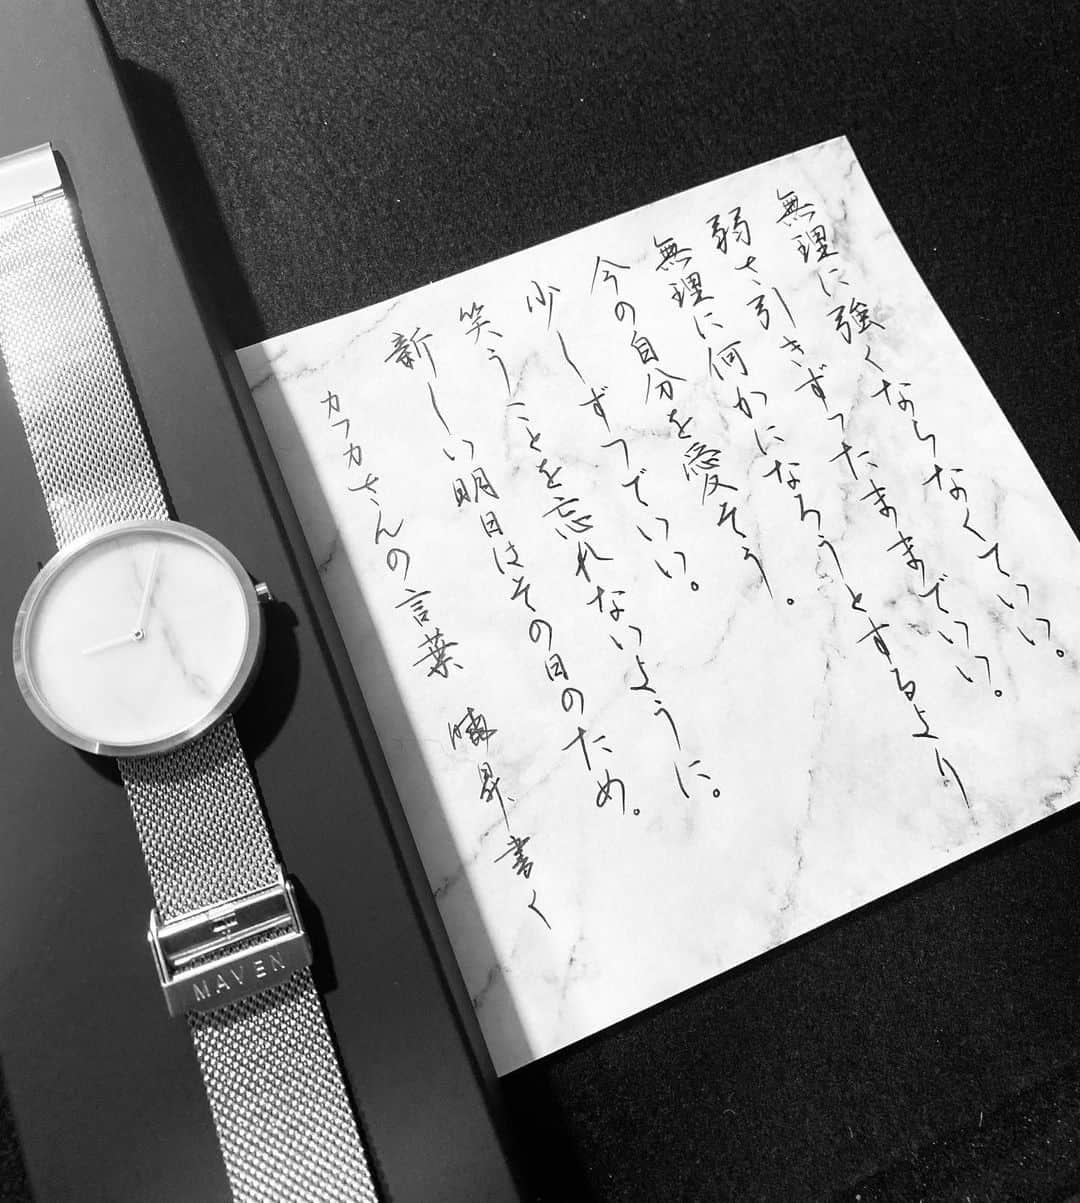 無理に強くならなくていい。
弱さ引きずったままでいい。
無理に何かになろうとするより
今の自分を愛そう。
少しずつでいい。
笑うことを忘れないように。
新しい明日はその日のため。
カフカさんの言葉
書く
MAVEN